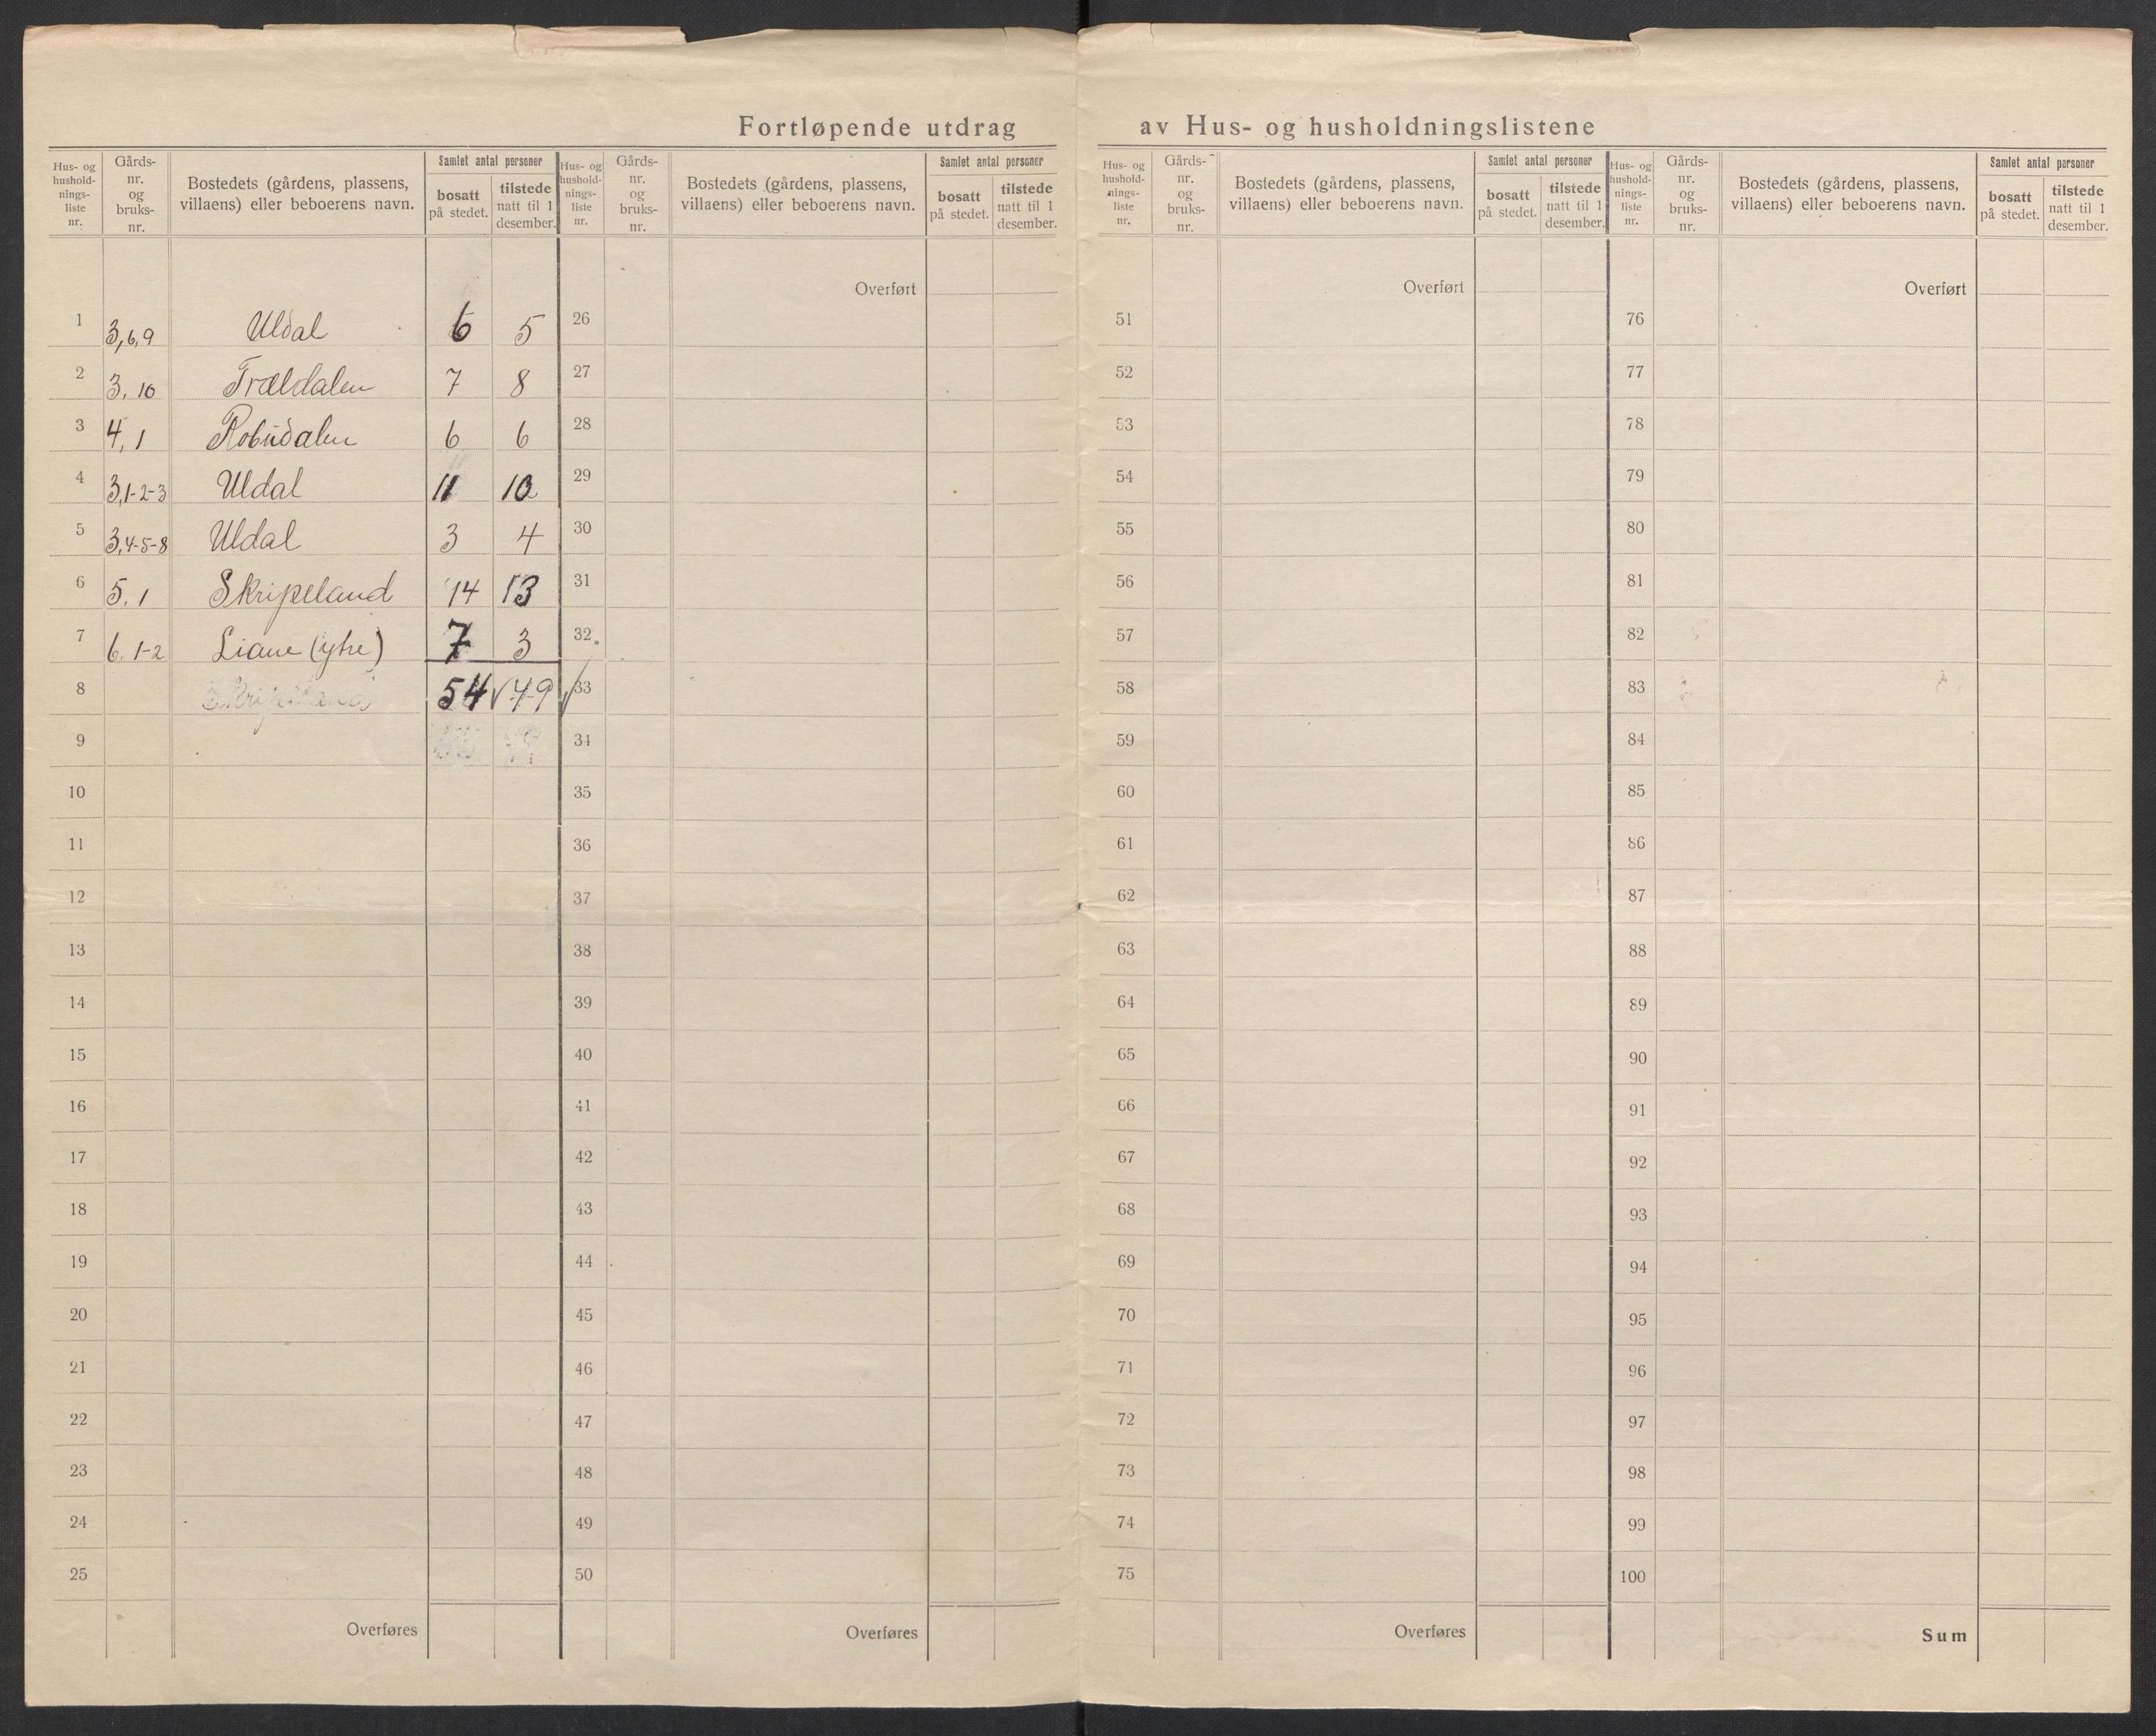 Fortløpende utdrag av Hus- og husholdningslistene
Hus- og hushold-nings-liste nr.
Gårds-nr. og bruks-nr.
Bostedets (gårdens, plassens, villaens) eller beboerens navn.
Samlet antal personer
bosatt på stedet.
tilstede natt til 1 desember.
1 3,6,9 Uldal 6 5
2 3, 10 Trældalen 7 8
3 4, 1 Robudalen 6 6
4 3,1-2-3 Uldal 11 10
5 3,4-5-8 Uldal 3 4
6 5. 1 Skripeland 14 13
7 6. 1-2 Liane (ytre) 7 3
8 Skripeland 54 √ 49 √
9
10
11
12
13
14
15
16
17
18
19
20
21
22
23
24
25
Overføres
Hus- og hushold-nings-liste nr.
Gårds-nr. og bruks-nr.
Bostedets (gårdens, plassens, villaens) eller beboerens navn.
Samlet antal personer
bosatt på stedet.
tilstede natt til 1 desember.
Overført
26
27
28
29
30
31
32
33
34
35
36
37
38
39
40
41
42
43
44
45
46
47
48
49
50
Overføres
Hus- og hushold-nings-liste nr.
Gårds-nr. og bruks-nr.
Bostedets (gårdens, plassens, villaens) eller beboerens navn.
Samlet antal personer
bosatt på stedet.
tilstede natt til 1 desember.
Overført
51
52
53
54
55
56
57
58
59
60
61
62
63
64
65
66
67
68
69
70
71
72
73
74
75
Overføres
Hus- og hushold-nings-liste nr.
Gårds-nr. og bruks-nr.
Bostedets (gårdens, plassens, villaens) eller beboerens navn.
Samlet antal personer
bosatt på stedet.
tilstede natt til 1 desember.
Overført
76
77
78
79
80
81
82
83
84
85
86
87
88
89
90
91
92
93
94
95
96
97
98
99
100
Sum